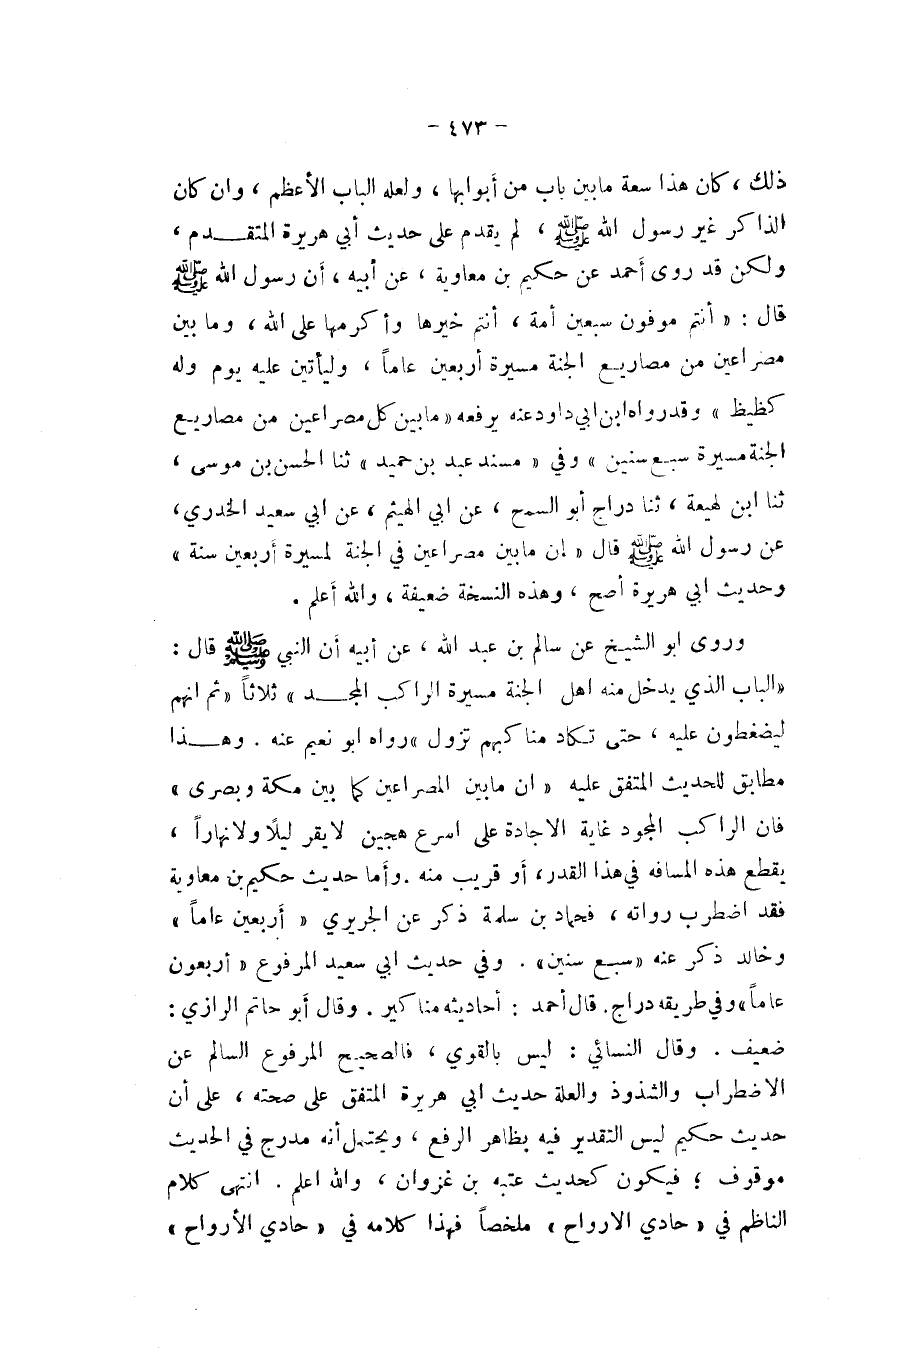 - ٤٧٣ -
ذلك ، كان هذا سعة مابين باب من أبوابها ، ولعله الباب الأعظم ، وان كان
الذاكر غير رسول الله ﷺ ، لم يقدم على حديث أبي هريرة المتقـــدم ،
ولكن قد روى أحمد عن حكيم بن معاوية ، عن أبيه ، أن رسول الله ﷺ
قال : « أنتم موفون سبعين أمة ، أنتم خيرها وأكرمها على الله ، وما بين
مصراعين من مصاريع الجنة مسيرة أربعين عاماً ، وليأتين عليه يوم وله
كظيظ » وقدرواه ابن ابي داود عنه يرفعه « مابين كل مصراعين من مصاريع
الجنة مسيرة سبع سنين » وفي « مسند عبد بن حميد » ثنا الحسن بن موسى ،
ثنا ابن لهيعة ، ثنا دراج أبو السمح ، عن ابي الهيثم ، عن ابي سعيد الخدري،
عن رسول الله ﷺ قال « إن مابين مصراعين في الجنة لمسيرة أربعين سنة »
وحديث ابي هريرة أصح ، وهذه النسخة ضعيفة ، والله أعلم .
وروى ابو الشيخ عن سالم بن عبد الله ، عن أبيه أن النبي ﷺ قال :
«الباب الذي يدخل منه اهل الجنة مسيرة الراكب المجـــد » ثلاثاً « ثم انهم
ليضغطون عليه ، حتى تكاد مناكبهم تزول » رواه ابو نعيم عنه . وهـــذا
مطابق للحديث المتفق عليه « ان مابين المصراعين كما بين مكة وبصرى »
فان الراكب المجود غاية الاجادة على اسرع هجين لايقر ليلًا ولانهاراً ،
يقطع هذه المسافه في هذا القدر، أو قريب منه . وأما حديث حكيم بن معاوية
فقد اضطرب رواته ، فحماد بن سلمة ذكر عن الجريري « أربعين عاماً »
وخالد ذكر عنه «سبع سنين» . وفي حديث ابي سعيد المرفوع « أربعون
عاماً» وفي طريقه دراج. قال أحمد : أحاديثه مناكير . وقال أبو حاتم الرازي :
ضعيف . وقال النسائي : ليس بالقوي ، فالصحيح المرفوع السالم عن
الاضطراب والشذوذ والعلة حديث ابي هريرة المتفق على صحته ، على أن
حديث حكيم ليس التقدير فيه بظاهر الرفع ، ويحتمل أنه مدرج في الحديث
موقوف ؛ فيكون كحديث عتبه بن غزوان ، والله اعلم . انتهى كلام
الناظم في « حادي الارواح » ملخصاً فهذا كلامه في « حادي الأرواح »